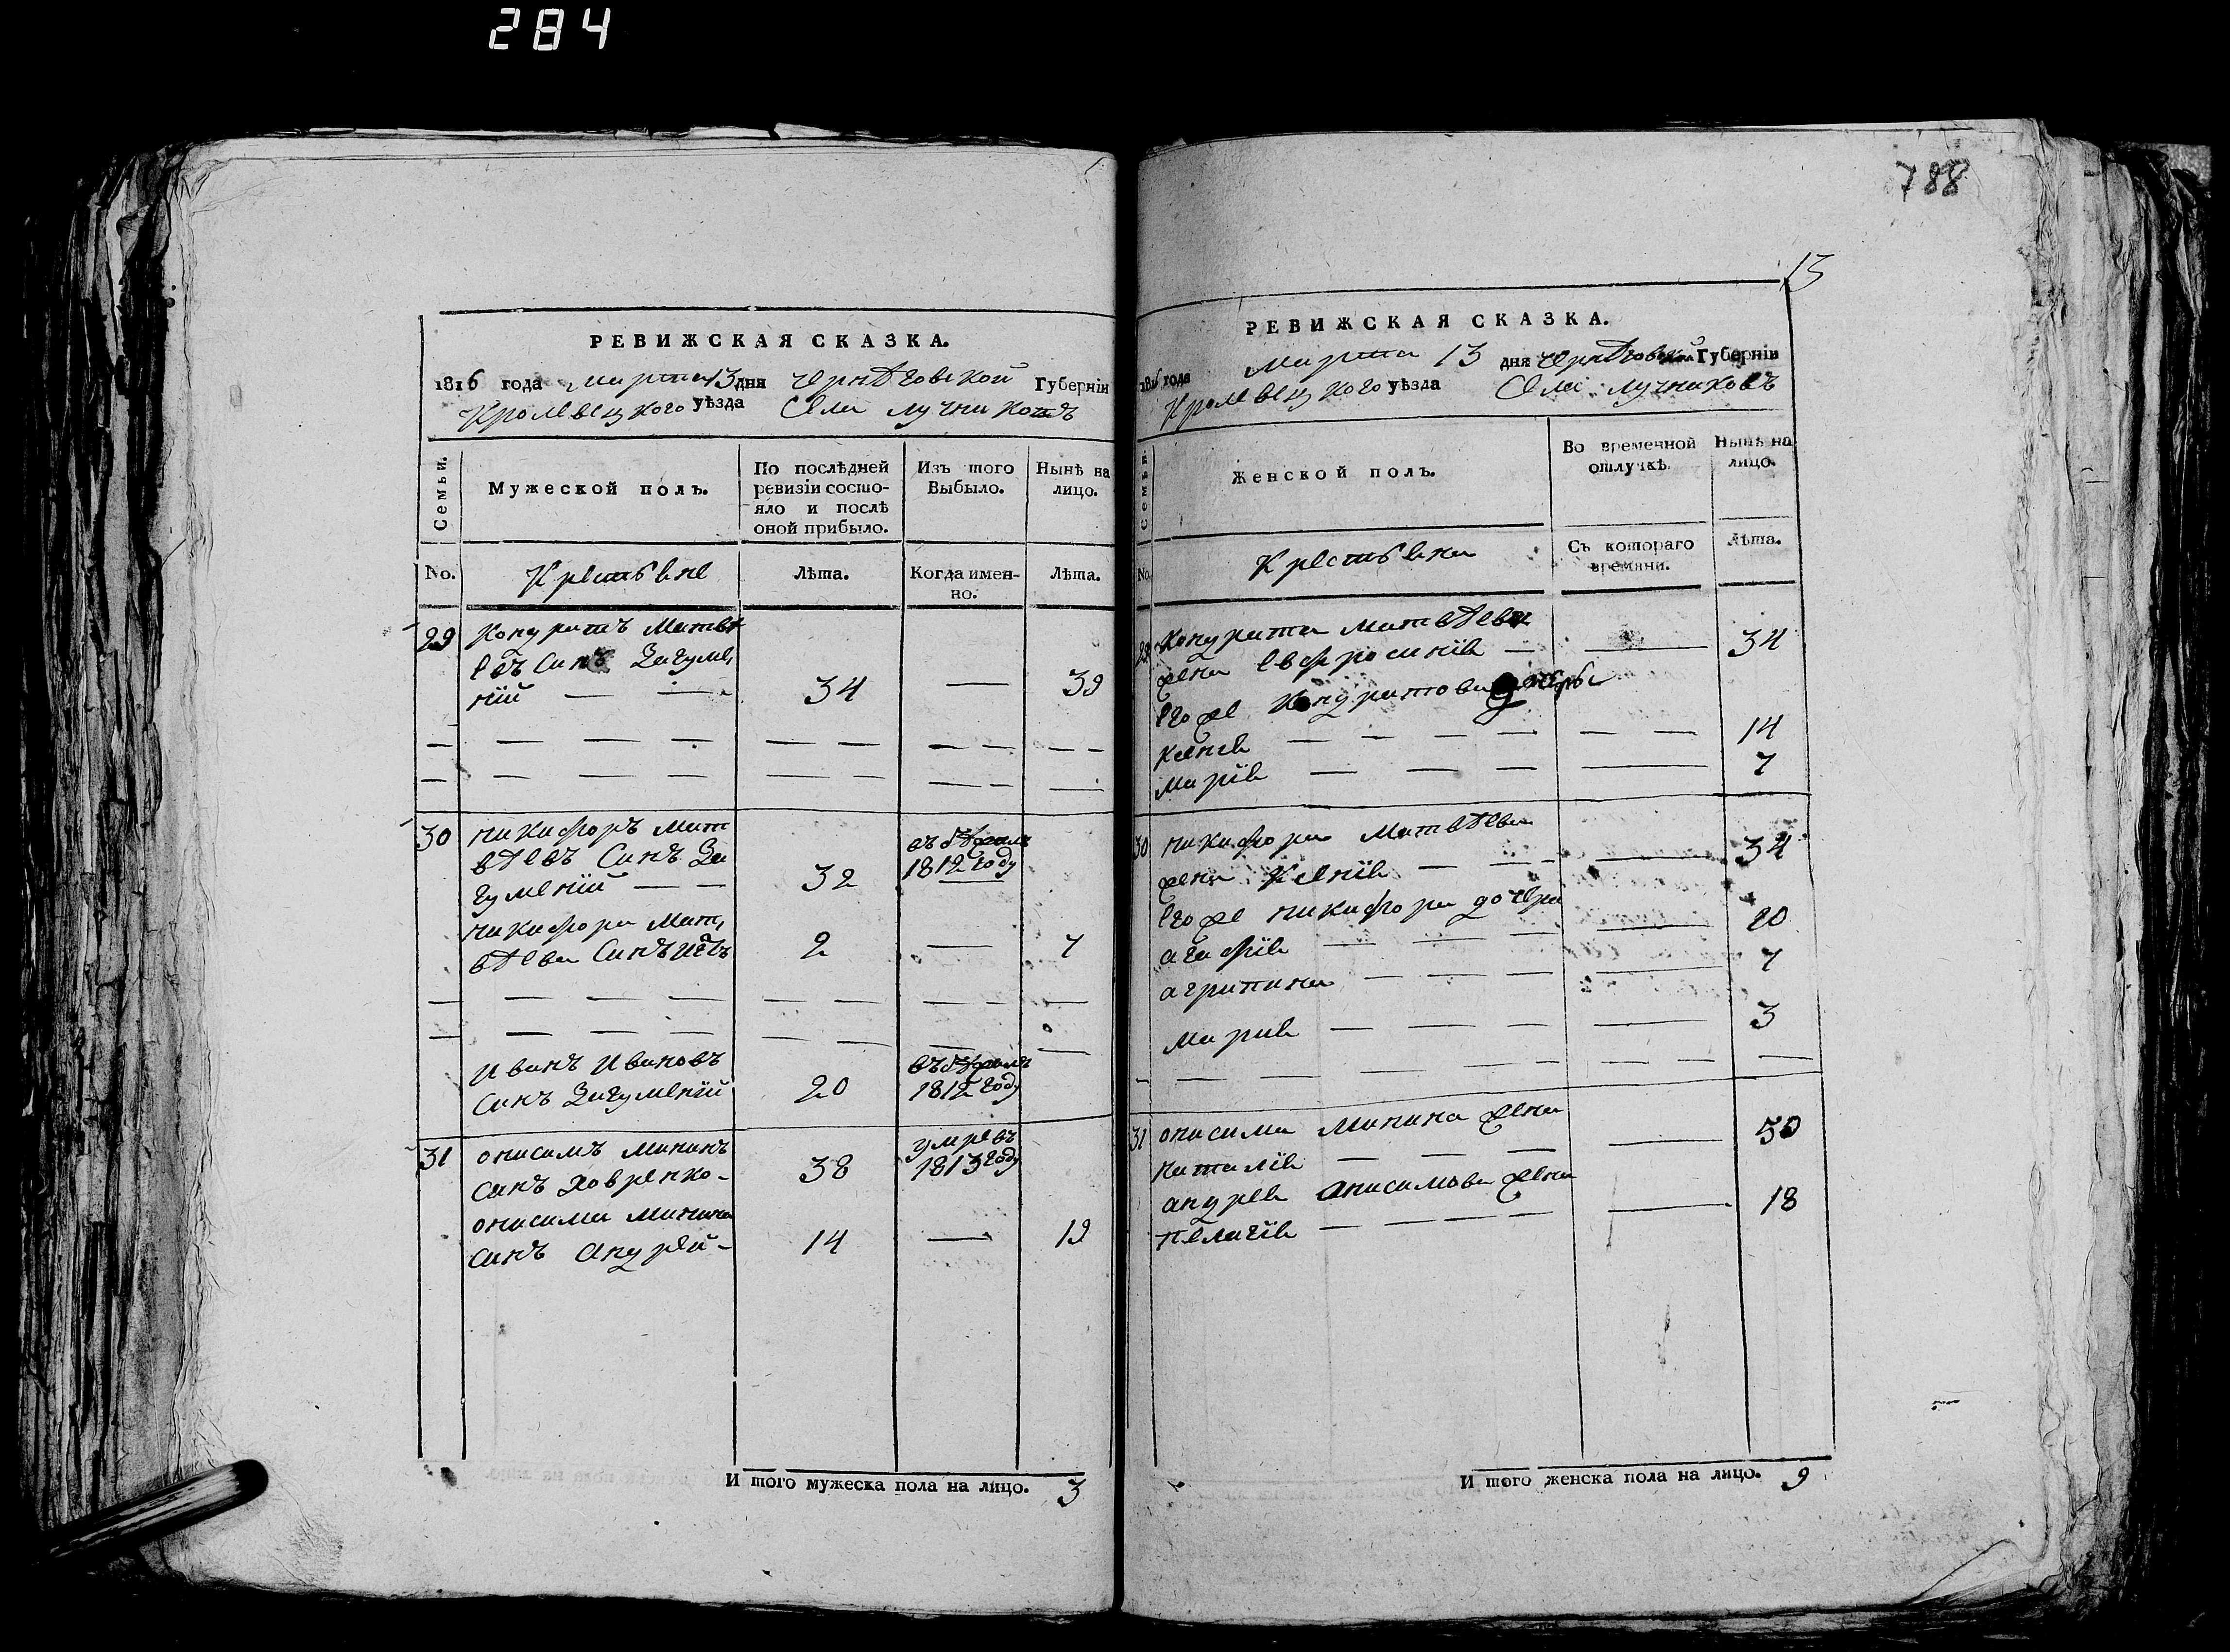 284
788
13
РЕВИЖСКАЯ СКАЗКА.
1816 года марта 13 дня Чернѣговской Губерніи
Кролевецкого уѣзда Села Лучниковъ
Семьи.
Мужеской полъ.
По послѣдней ревизіи состо-
яло и послѣ
оной прибыло.
Изъ того
Выбыло.
Нынѣ на
лицо.
No.
Крестьяне
Лѣта.
Когда имен-
но.
Лѣта.
29 Кондратъ Матвѣ
евъ Синъ Загуме,
ній — — 34 — 39
30 никифоръ Мат
вѣевъ Синъ За
гумений — — 32 1812 году
никифора Мат,
вѣева Синъ 2 — 7
иванъ ивановъ
Синъ Загумений 20 1812 году
31 онисимъ мининъ
Синъ Ховренко - 38 умре въ 1813 году
онисима минина
Синъ Андрей - 14 — 19
И того мужеска пола на лицо. 3
РЕВИЖСКАЯ СКАЗКА.
1816 года марта 13 дня Чернѣговской Губерніи
Кролевецкого уѣзда Села Лучниковъ
Семьи.
Женской полъ.
Во временной
отлучкѣ.
Нынѣ на
лицо.
No.
Крестьяна
Съ котораго
времяни.
Лѣта.
29 Кондрата матвѣева
жена евфросинія — — 34
его же Кондратова дочеры
ксенія — — — — 14
марія — — — — 7
30 никифора Матвѣева
жена Ксенія — — — 34
его же никифора дочери
агафія — — — — 20
агрипина — — — — 7
Мария — — — — 3
31 онисима минина жена
наталія — — — — 50
андрея анисимова жена
пелагія — — — — 18
И того женска пола на лицо. 9